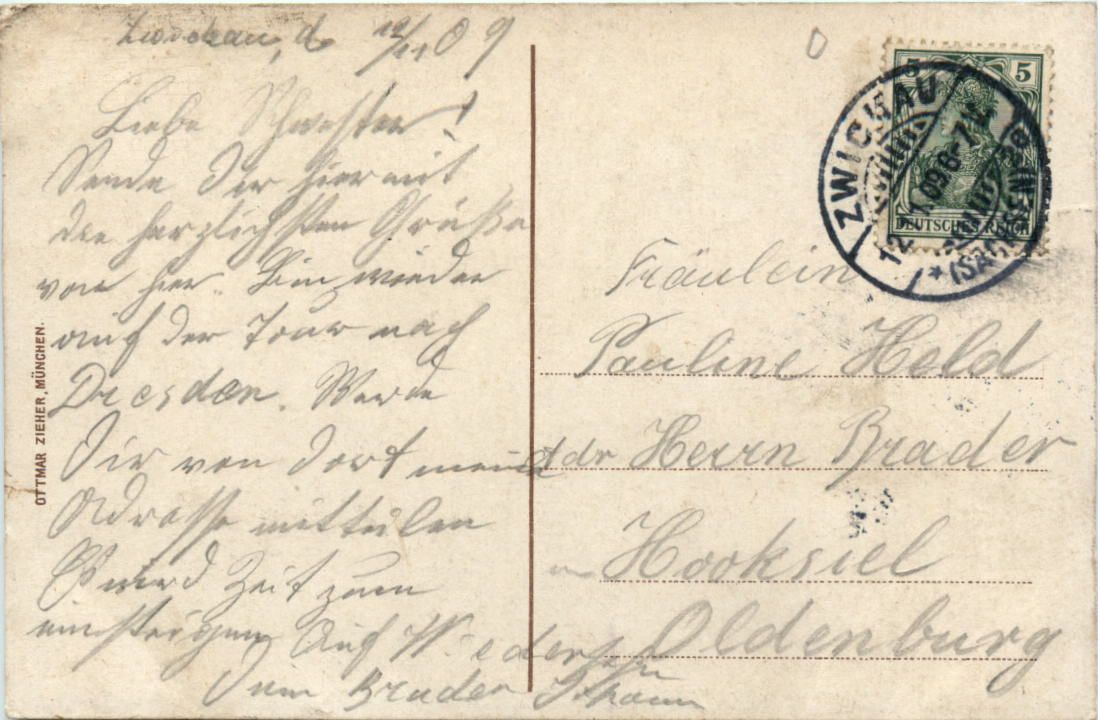 Zwickau, d. 12/11 09
Liebe Schwester!
Sende Dir hiermit
die herzlichsten Grüße
von hier. Bin wieder
auf der Tour nach
Dresden. Werde
Dir von dort meine
Adresse mitteilen
Es wird Zeit zum
einsteigen Auf Wiedersehn
Dein Bruder Johann
OTTMAR ZIEHER, MÜNCHEN.
5 5
DEUTSCHES REICH
ZWICKAU
12.11.09.6-7N.
* (SACHSEN)
Fräulein
Pauline Held
adr Herrn Brader
Hooksiel
Oldenburg